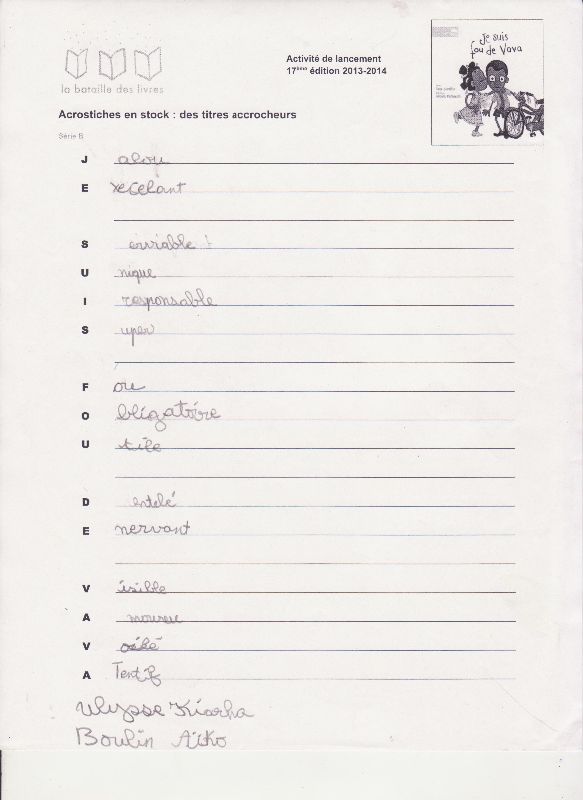 Activité de lancement
17ème édition 2013-2014
Je suis
fou de Vava
la bataille des livres
Acrostiches en stock : des titres accrocheurs
Série B
J alou
E xecelant
S erviable !
U nique
I responsable
S uper
F ou
O bligatoire
U tile
D entelé
E nervant
V isible
A moureu
V
A Tentif
Ulysse Kiarha
Boulin Aïko